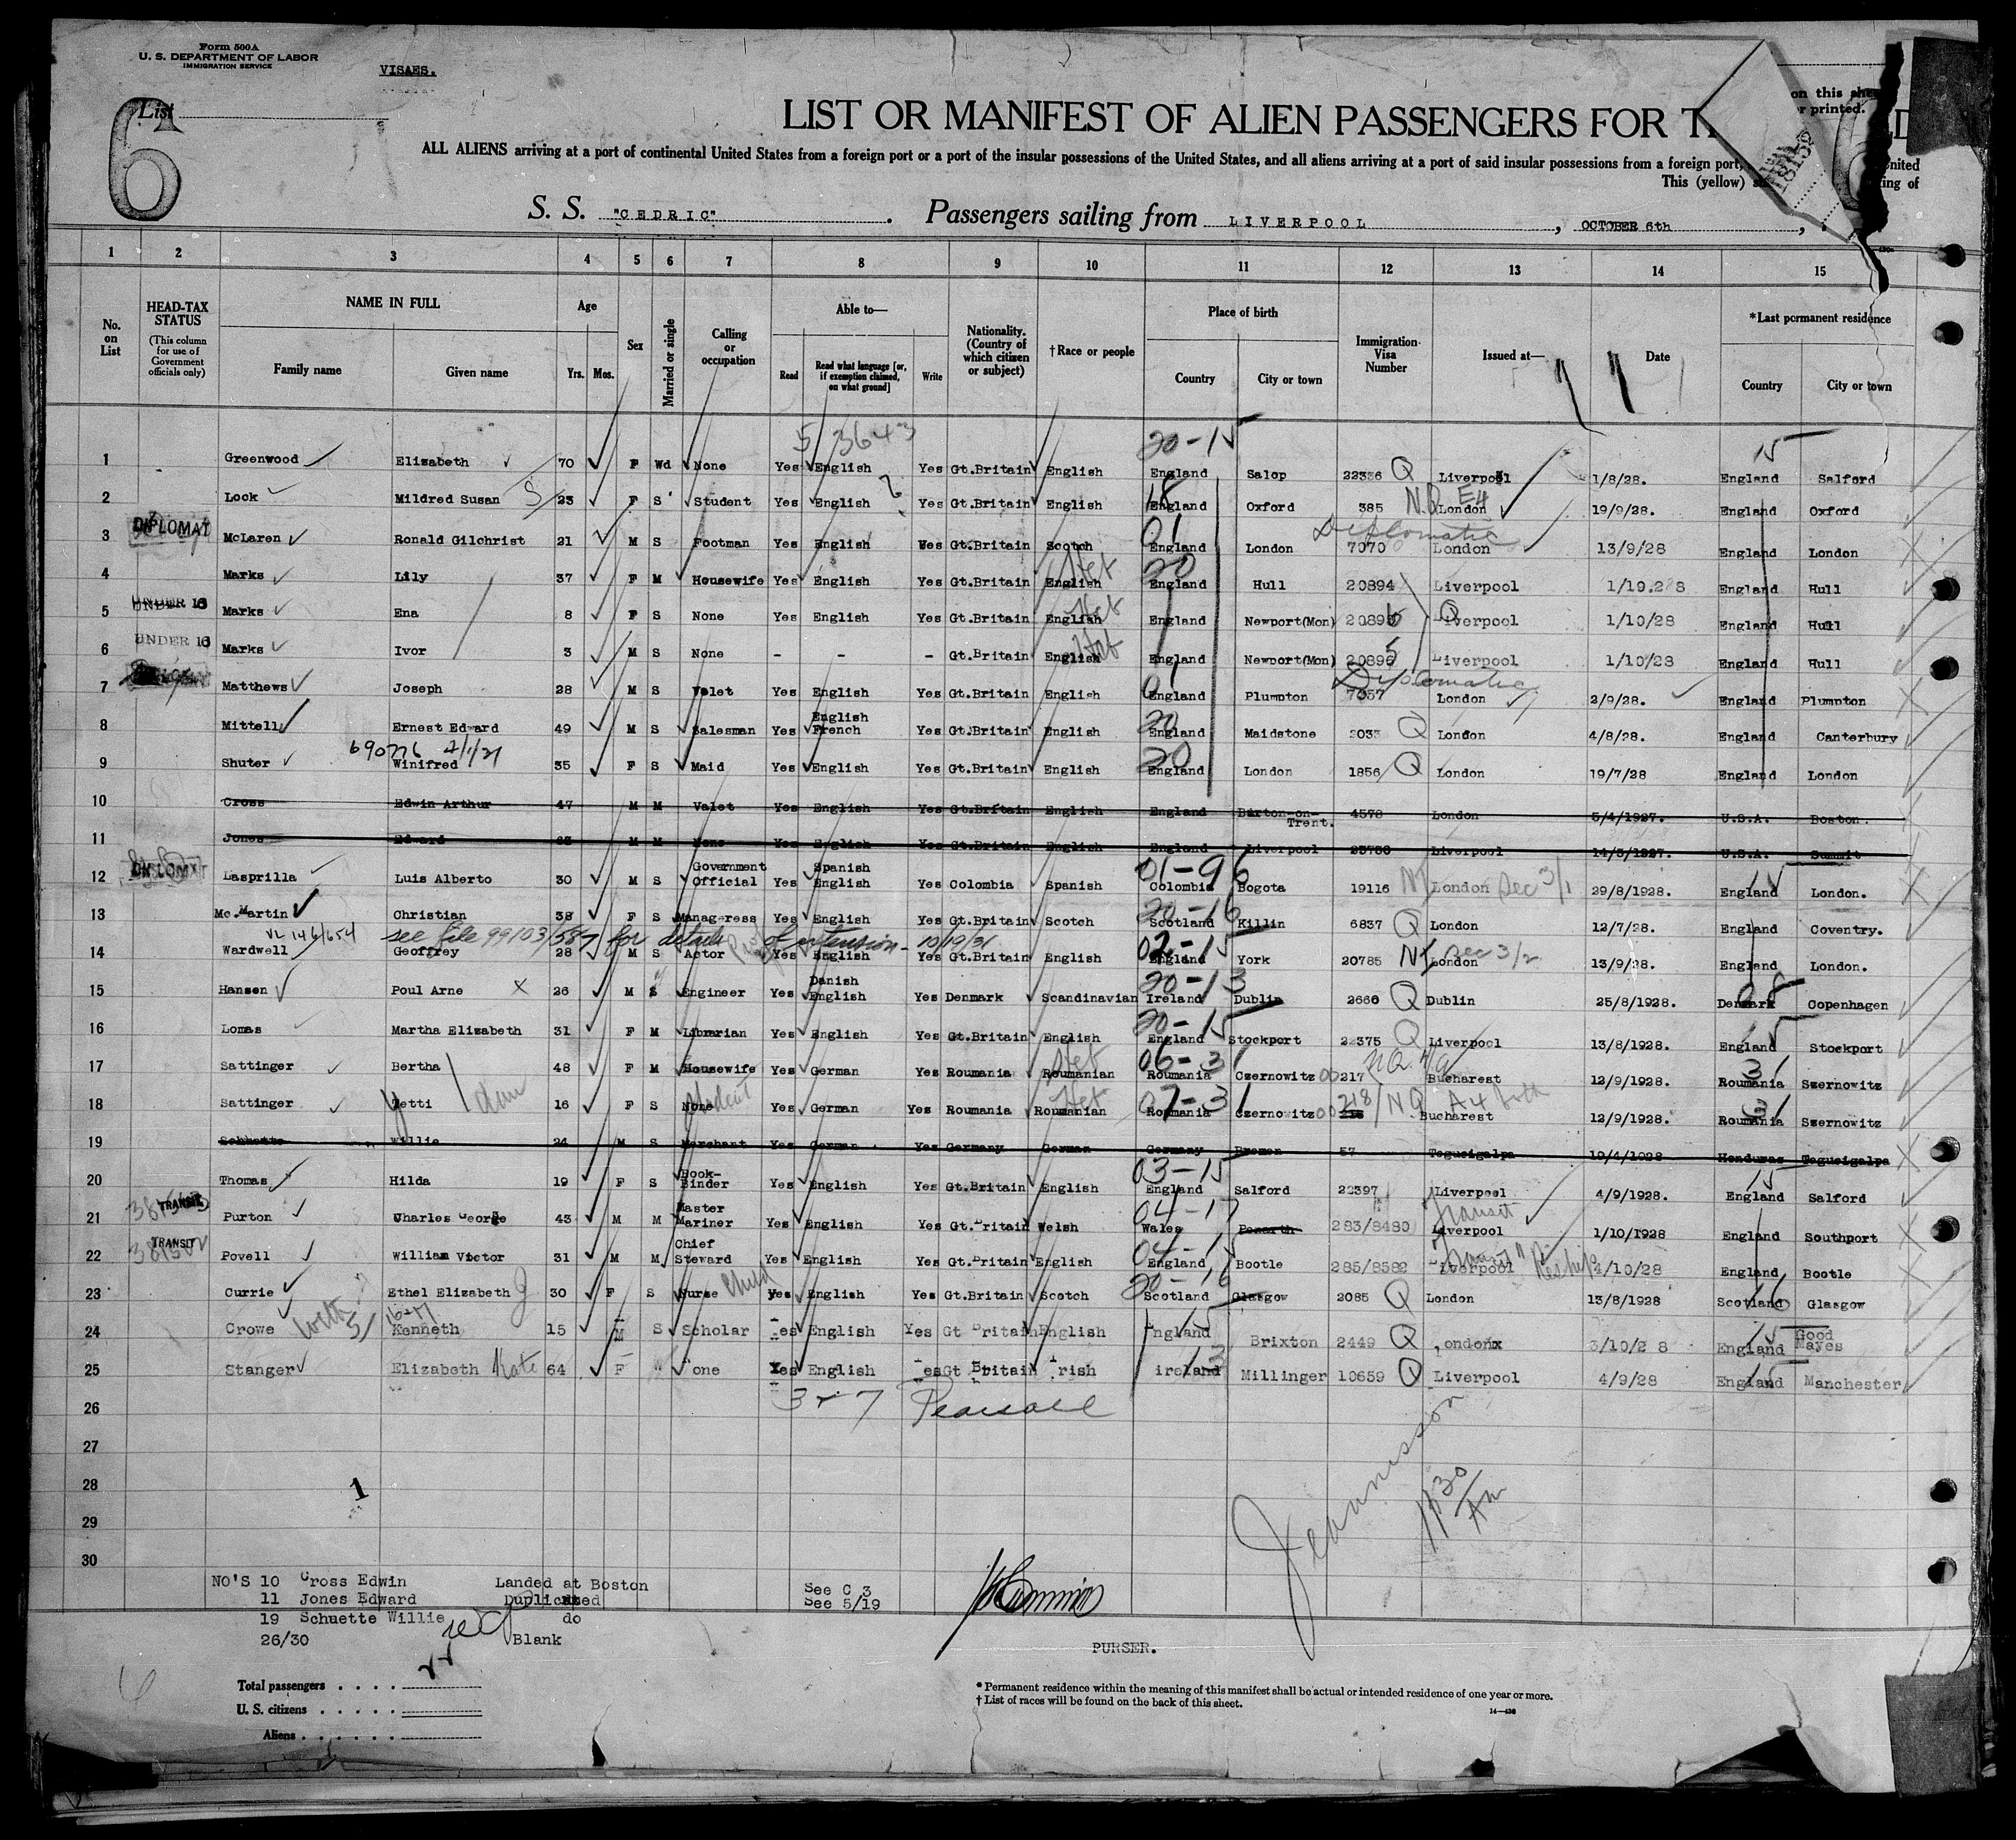 Form 500A
U. S. DEPARTMENT OF LABOR
IMMIGRATION SERVICE
VISAES.
List
6
LIST OR MANIFEST OF ALIEN PASSENGERS FOR T
on this
or printed.
ALL ALIENS arriving at a port of continental United States from a foreign port or a port of the insular possessions of the United States, and all aliens arriving at a port of said insular possessions from a foreign port,
This (yellow)
S. S. "CEDRIC" . Passengers sailing from LIVERPOOL , OCTOBER 6th ,
1 2 3 4 5 6 7 8 9 10 11 12 13 14 15
No. on List
HEAD-TAX STATUS (This column for use of Government officials only)
NAME IN FULL
Family name Given name
Age
Yrs. Mos.
Sex
Married or single
Calling or occupation
Able to—
Read Read what language [or, if exemption claimed, on what ground] Write
Nationality. (Country of which citizen or subject)
†Race or people
Place of birth
Country City or town
Immigration Visa Number
Issued at—
Date
*Last permanent residence
Country City or town
5 3643 20-15 15
1 Greenwood Elizabeth 70 F Wd None Yes English Yes Gt.Britain English England Salop 22336 Q Liverpool 1/8/28. England Salford
2 Lock Mildred Susan 23 F S Student Yes English Yes Gt.Britain English England Oxford 385 London 19/9/28. England Oxford
DIPLOMAT 01 Diplomatic
3 McLaren Ronald Gilchrist 21 M S Footman Yes English Yes Gt.Britain Scotch England London 7070 London 13/9/28 England London
4 Marks Lily 37 F M Housewife Yes English Yes Gt.Britain English England Hull 20894 Liverpool 1/10.28 England Hull
UNDER 16
5 Marks Ena 8 F S None Yes English Yes Gt.Britain English England Newport(Mon) 20896 Q Liverpool 1/10/28 England Hull
UNDER 16
6 Marks Ivor 3 M S None - - - Gt.Britain English England Newport(Mon) 20895 Liverpool 1/10/28 England Hull
Diplomatic
7 Matthews Joseph 28 M S Valet Yes English Yes Gt.Britain English England Plumpton 7057 London 2/9/28. England Plumpton
8 Mittell Ernest Edward 49 M S Salesman Yes English French Yes Gt.Britain English England Maidstone Q London 4/8/28. England Canterbury
690776 4/1/21
9 Shuter Winifred 35 F S Maid Yes English Yes Gt.Britain English England London 1856 Q London 19/7/28 England London
10 Cross Edwin Arthur 47 M M Valet Yes English Yes Gt.Britain English England Burton-on-Trent. 4578 London 5/4/1927. U.S.A. Boston.
11 Jones Edward M M None Yes English Yes Gt.Britain English England Liverpool Liverpool 14/5/1927. U.S.A. Summit
01-96
12 Lasprilla Luis Alberto 30 M S Government Official Yes Spanish English Yes Colombia Spanish Colombia Bogota 19116 London Sec 3/1 29/8/1928. England London.
20-16
13 Mc.Martin Christian 38 F S Manageress Yes English Yes Gt.Britain Scotch Scotland Killin 6837 Q London 12/7/28. England Coventry.
VL 146/654 see file 99103/587 for details of extension - 10/19/31 02-15
14 Wardwell Geoffrey 28 M S Actor Yes English Yes Gt.Britain English England York 20785 London Sec 3/2 13/9/28. England London.
20-13
15 Hansen Poul Arne 26 M S Engineer Yes Danish English Yes Denmark Scandinavian Ireland Dublin 2660 Q Dublin 25/8/1928. Denmark Copenhagen
20-15
16 Lomas Martha Elizabeth 31 F M Librarian Yes English Yes Gt.Britain English England Stockport 22375 Q Liverpool 13/8/1928. England Stockport
06-31
17 Sattinger Bertha 48 F M Housewife Yes German Yes Roumania Roumanian Roumania Czernowitz 217 Bucharest 12/9/1928. Roumania Szernowitz
Student 07-31 218
18 Sattinger Yetti 16 F S None Yes German Yes Roumania Roumanian Roumania Czernowitz Bucharest 12/9/1928. Roumania Szernowitz
19 Schuette Willie 24 M S Merchant Yes German Yes Germany German Germany Bremen 57 Tegucigalpa 19/4/1928 Honduras Tegucigalpa
03-15 15
20 Thomas Hilda 19 F S Book-Binder Yes English Yes Gt.Britain English England Salford 22397 Liverpool 4/9/1928. England Salford
TRANSIT 04-17 Transit
21 Purton Charles George 43 M M Master Mariner Yes English Yes Gt.Britain Welsh Wales Penarth 283/8480 Liverpool 1/10/1928 England Southport
TRANSIT
22 Povell William Victor 31 M M Chief Steward Yes English Yes Gt.Britain English England Bootle 285/8582 Liverpool 4/10/28 England Bootle
20-16
23 Currie Ethel Elizabeth 30 F S Nurse Child Yes English Yes Gt.Britain Scotch Scotland Glasgow 2085 Q London 13/8/1928 Scotland Glasgow
24 Crowe Kenneth 15 M S Scholar Yes English Yes Gt Britain English England Brixton 2449 Q ondonx 3/10/28 England Good Mayes
25 Stanger Elizabeth Kate 64 F W one Yes English es Gt Britain rish ireland Millinger 10659 Q Liverpool 4/9/28 England Manchester
26
27
28
29
30
1
11 30 Am
NO'S 10 Cross Edwin Landed at Boston See C 3
11 Jones Edward Duplicated See 5/19
19 Schuette Willie do
26/30 Blank
PURSER.
Total passengers . . . .
U. S. citizens . . . . .
Aliens . . . . . .
* Permanent residence within the meaning of this manifest shall be actual or intended residence of one year or more.
† List of races will be found on the back of this sheet.
14—430